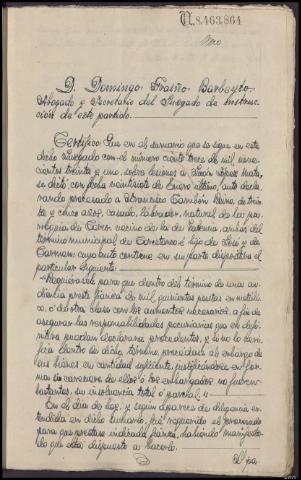 N.8.463.864
D. Domingo Fraiño Barbeyto,
Abogado y Secretario del Juzgado de instruc-
ción de este partido.
Certifico: Que en el sumario que se sigue en este
dicho Juzgado con el número ciento trece de mil nove-
cientos treinta y uno, sobre lesiones a Juan López Mata,
se dictó, con fecha veintisiete de Enero último, auto decla-
rando procesado a Francisco Cambón Neiro, de trein-
ta y cinco años, casado, labrador, natural de la pa-
rroquia de y vecino de la de ambas del
término municipal de e hijo de José y de
Carmen; cuyo auto contiene en su parte dispositiva el
particular siguiente:
"Requiérasele para que dentro del término de una au-
diencia preste fianza de mil quinientas pesetas en metáli-
co, o de otra clase con los aumentos necesarios, a fin de
asegurar las responsabilidades pecuniarias que en defi-
nitiva puedan declararse procedentes, y si no lo veri-
fica dentro de dicho término, procédase al embargo de
sus bienes en cantidad suficiente, justificándose en for-
ma si careciese de ellos o los embargados no fuesen
bastantes, su insolvencia total o parcial."
En el día de hoy, y según aparece de diligencia ex-
tendida en dicho sumario, fué requerido el procesado
para que prestase indicada fianza, habiendo manifesta-
do que está dispuesto a hacerlo.
Y pa-